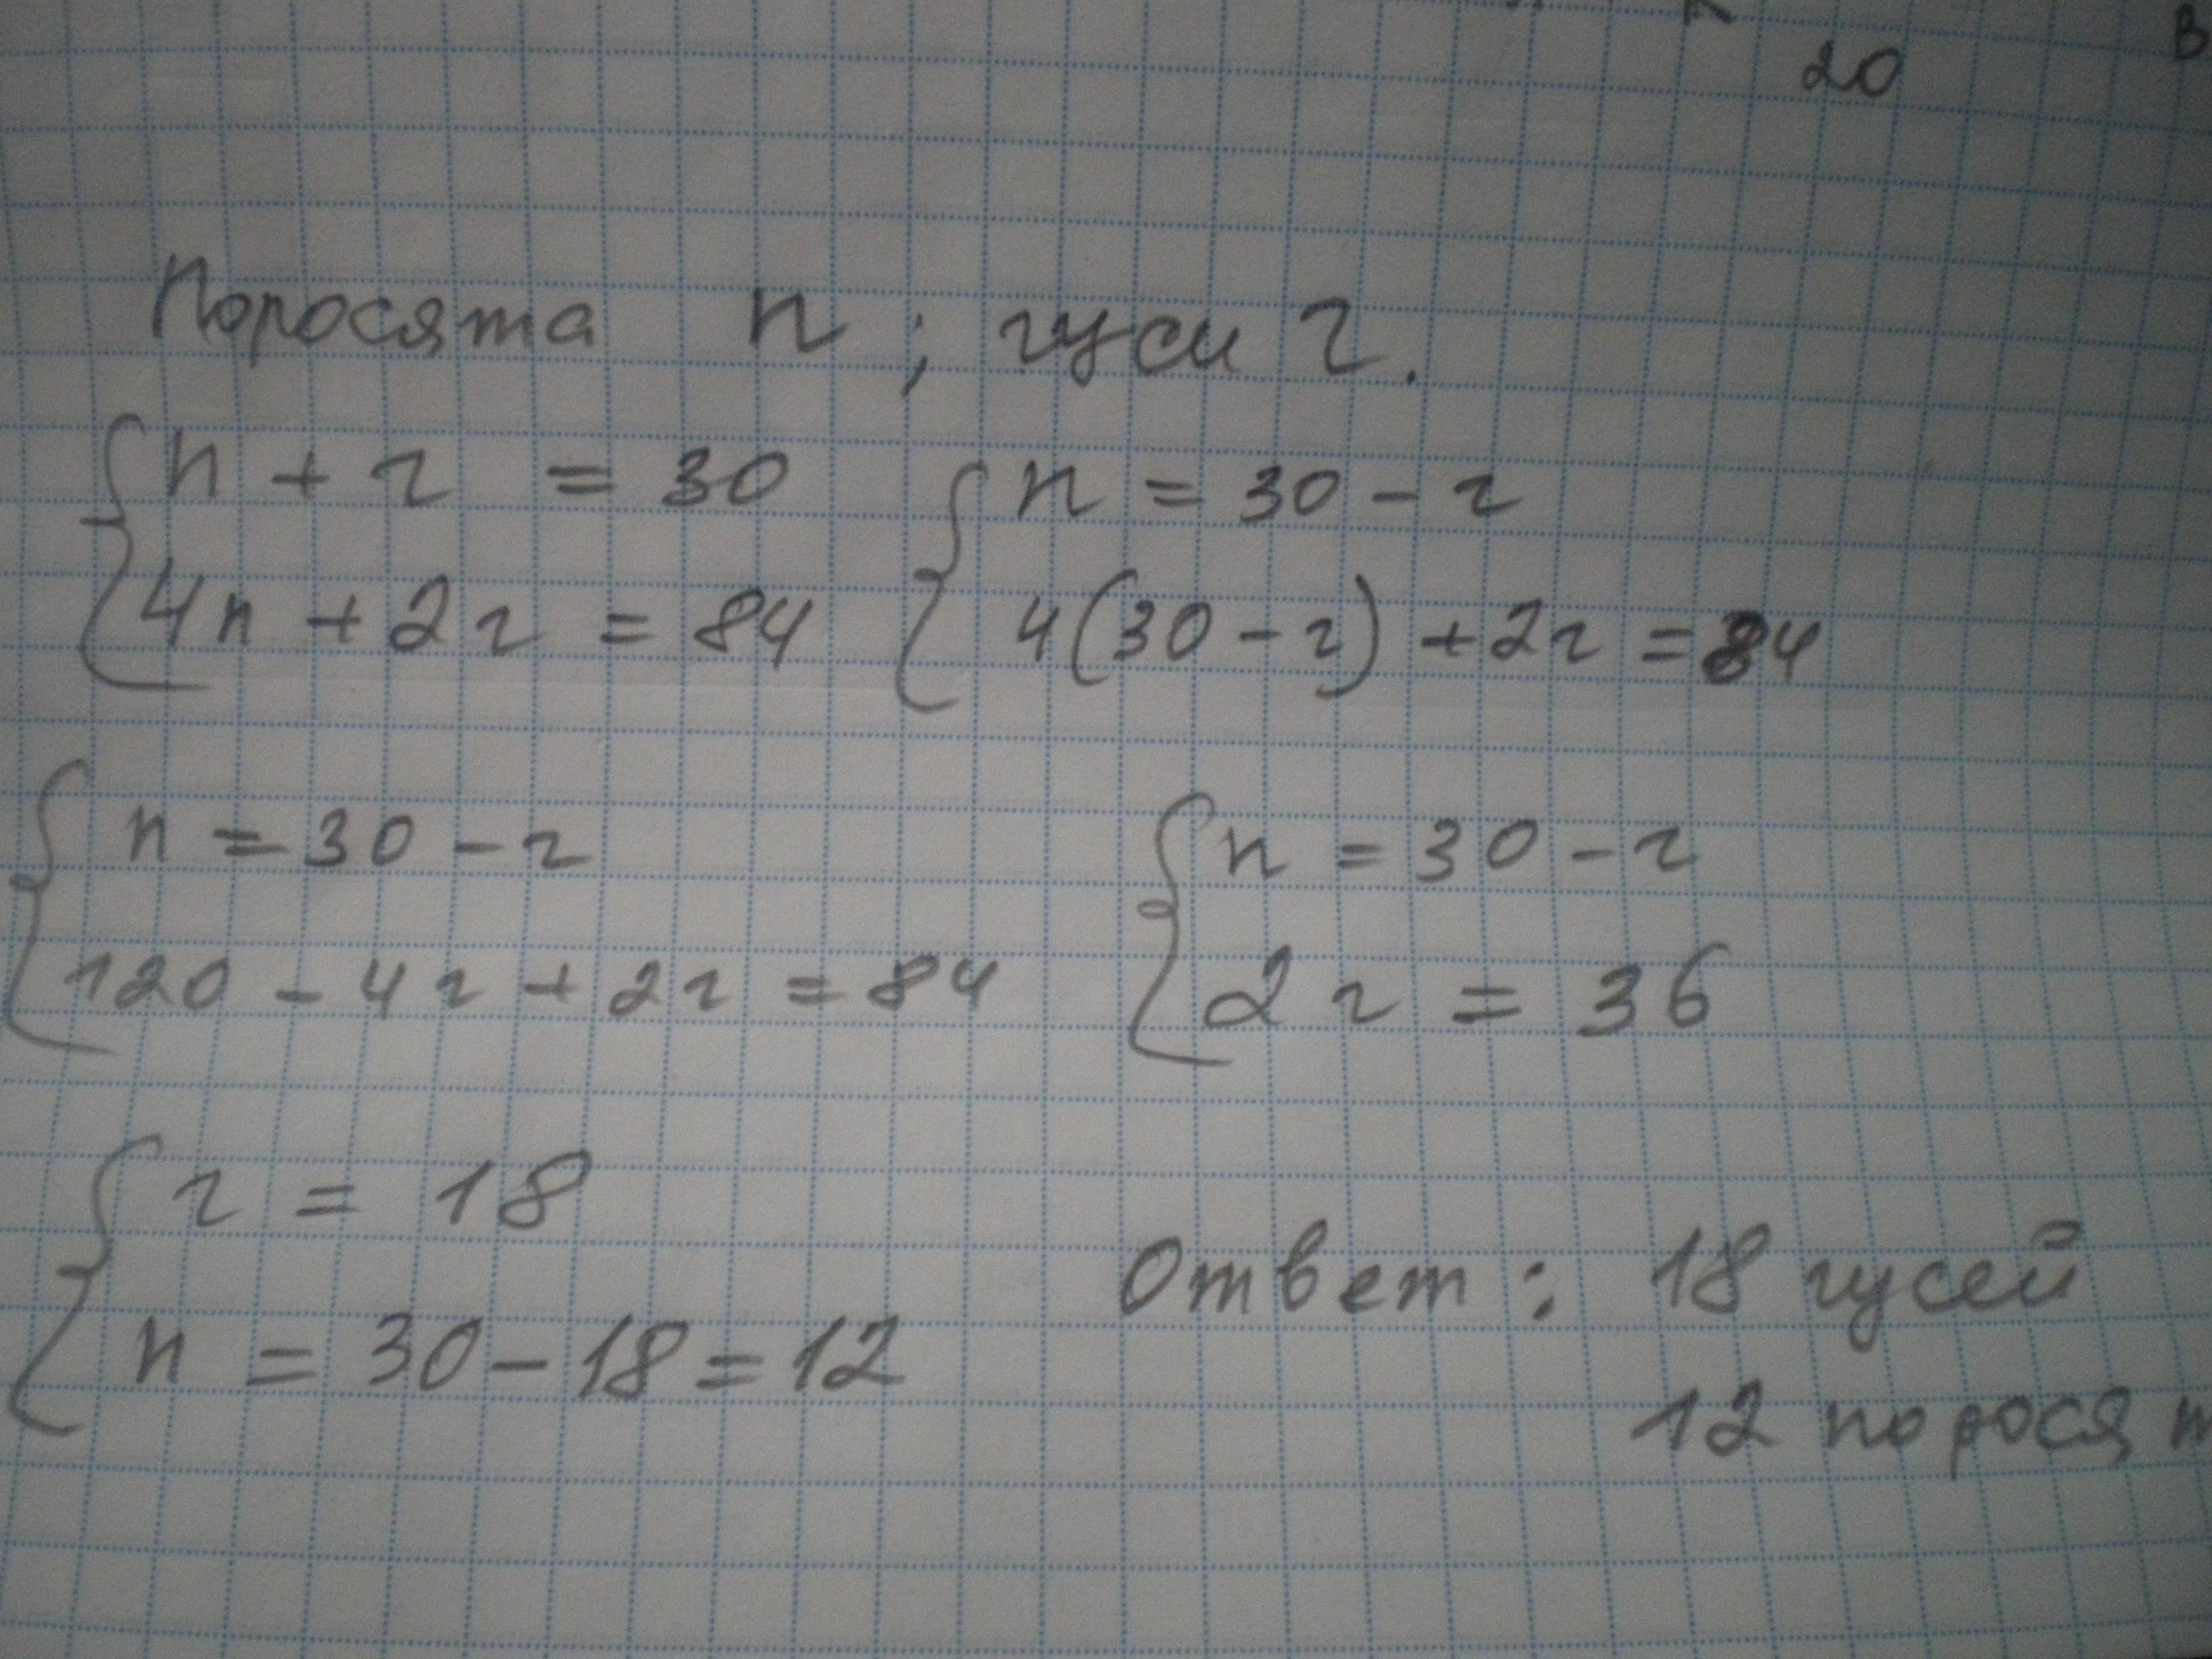 20 В
Поросята п ; гуси г.
п + г = 30
4п + 2г = 84
п = 30 - г
4(30 - г) + 2г = 84
п = 30 - г
120 - 4г + 2г = 84
п = 30 - г
2г = 36
г = 18
п = 30 - 18 = 12
Ответ : 18 гусей
12 поросят